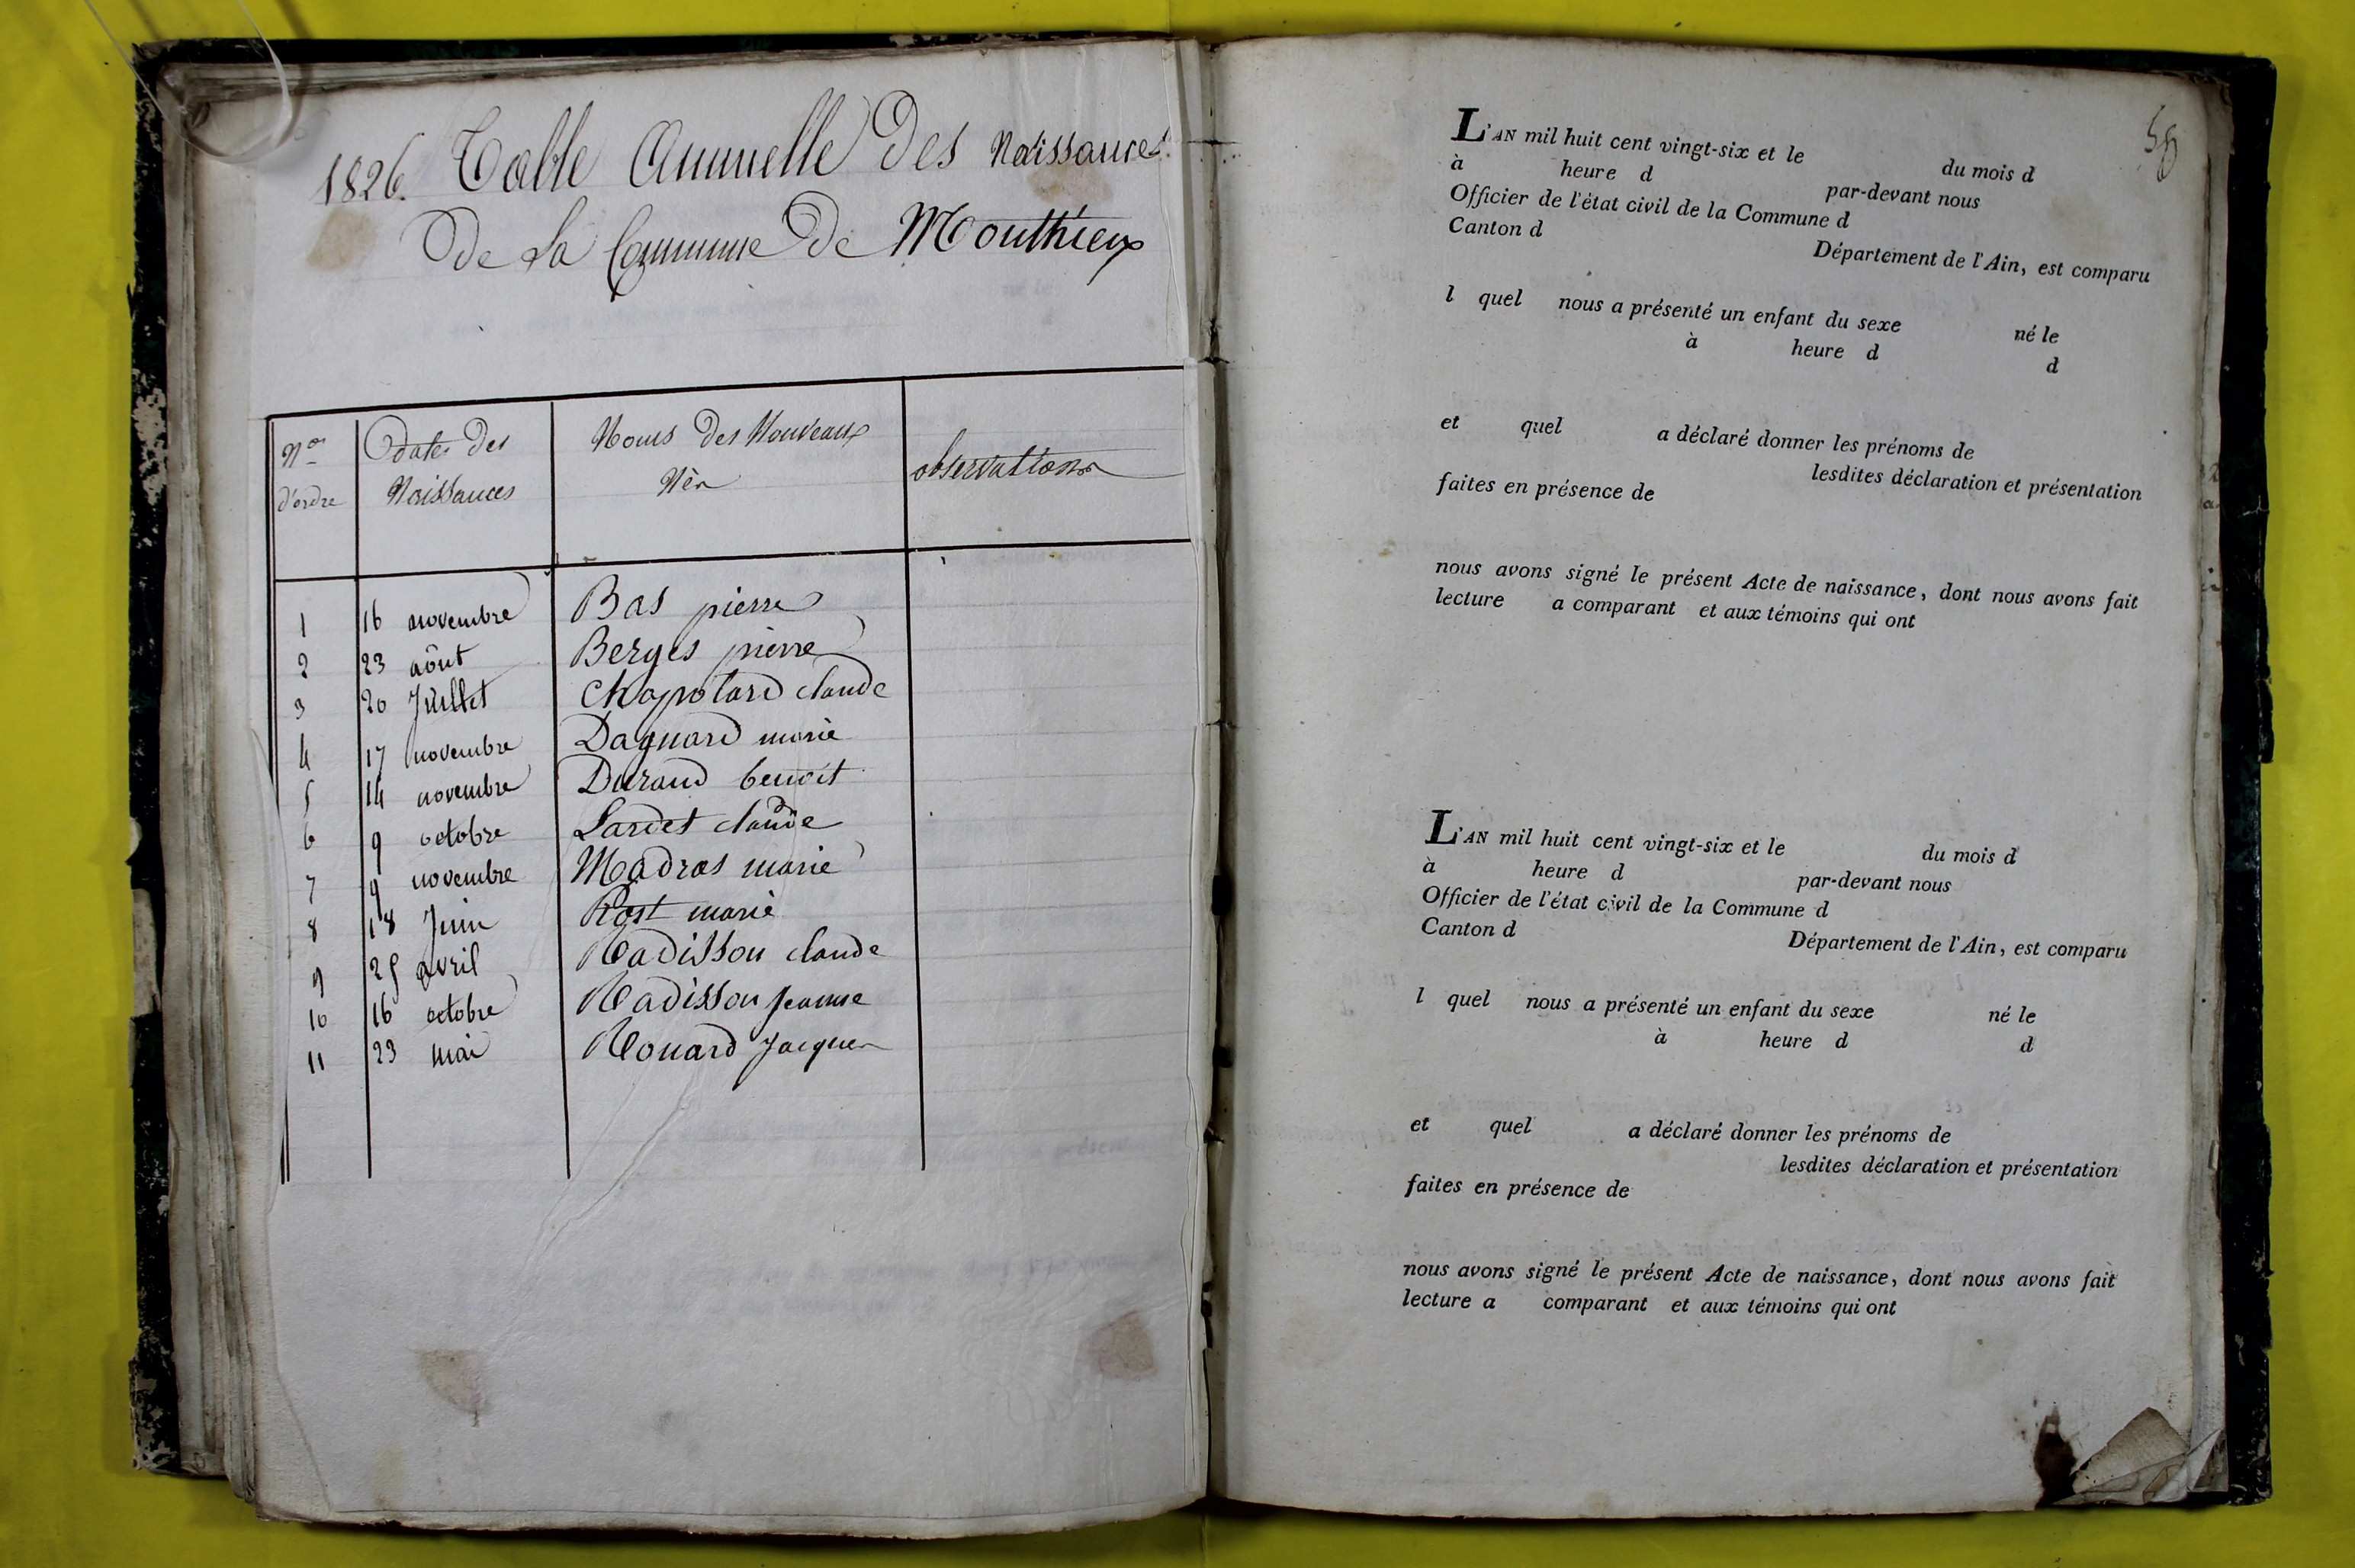 1826. Table Annuelle Des Naissances
De La Commune De Monthieux
Nos d'ordre
Dates Des Naissances
Noms Des Nouveaux Nés
observations
1 16 novembre Bas pierre
2 23 aôut Berges pierre
3 20 Juillet Chapotard claude
4 17 novembre Daguard marie
5 14 novembre Durand benoit
6 9 octobre Lardet claude
7 9 novembre Madras marie
8 18 Juin Post marie
9 25 avril Radisson claude
10 16 octobre Radisson Jeanne
11 23 mai Rouard Jacques
L'AN mil huit cent vingt-six et le du mois d
à heure d par-devant nous
Officier de l'état civil de la Commune d
Canton d Département de l'Ain, est comparu
l quel nous a présenté un enfant du sexe né le
à heure d d
et quel a déclaré donner les prénoms de
lesdites déclaration et présentation
faites en présence de
nous avons signé le présent Acte de naissance, dont nous avons fait
lecture a comparant et aux témoins qui ont
L'AN mil huit cent vingt-six et le du mois d
à heure d par-devant nous
Officier de l'état civil de la Commune d
Canton d Département de l'Ain, est comparu
l quel nous a présenté un enfant du sexe né le
à heure d d
et quel a déclaré donner les prénoms de
lesdites déclaration et présentation
faites en présence de
nous avons signé le présent Acte de naissance, dont nous avons fait
lecture a comparant et aux témoins qui ont